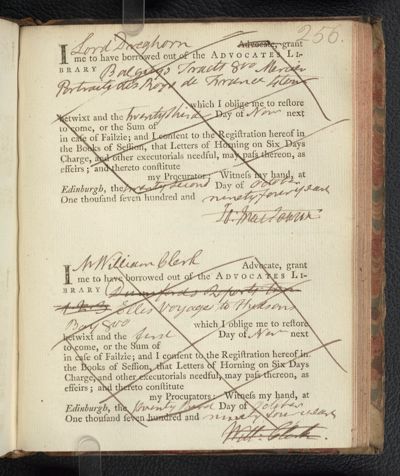 256.
I Lord Dreghorn Advocate, grant
me to have borrowed out of the ADVOCATES LI-
BRARY Balguys Tracts 8vo Mercier
Portraits des Roys de France 4 tom
, which I oblige me to reſtore
betwixt and the twenty third Day of Nov next
to come, or the Sum of
in caſe of Failzie; and I conſent to the Regiſtration hereof in
the Books of Seſſion, that Letters of Horning on Six Days
Charge, and other executorials needful, may paſs thereon, as
effeirs; and thereto conſtitute
my Procurators; Witneſs my hand, at
Edinburgh, the twenty second Day of October
One thouſand ſeven hundred and ninety four years
I Mr William Clerk Advocate, grant
me to have borrowed out of the ADVOCATES LI-
BRARY
Ellis Voyage to Hudsons
Bay 8vo which I oblige me to reſtore
betwixt and the first Day of Nov next
to come, or the Sum of
in caſe of Failzie; and I conſent to the Regiſtration hereof in
the Books of Seſſion, that Letters of Horning on Six Days
Charge, and other executorials needful, may paſs thereon, as
effeirs; and thereto conſtitute
my Procurators; Witneſs my hand, at
Edinburgh, the twenty third Day of October
One thouſand ſeven hundred and ninety four years
Will. Clerk